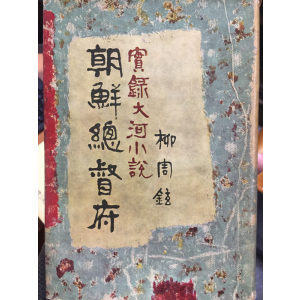 實錄大河小說
朝鮮總督府
柳周鉉